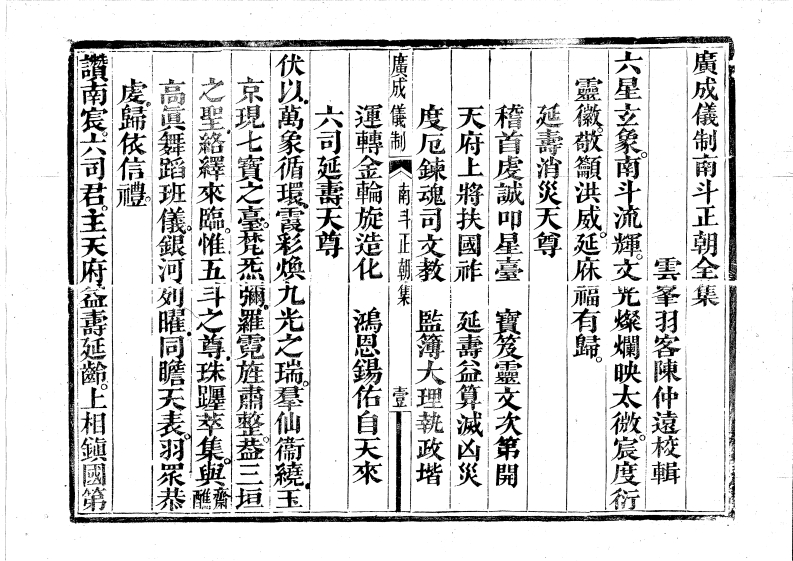 廣成儀制南斗正朝全集
雲峯羽客陳仲遠校輯
六星玄象。南斗流輝。文光燦爛映太微。宸度衍
靈徽。敬籲洪威。延庥福有歸。
延壽消災天尊
稽首虔誠叩星臺　寶笈靈文次第開
天府上將扶國祚　延壽益算滅凶災
度厄鍊魂司文教　監簿大理執政堦
廣成儀制　南斗正朝集　壹
運轉金輪旋造化　鴻恩錫佑自天來
六司延壽天尊
伏以萬象循環。霞彩煥九光之瑞。羣仙衞繞。玉
京現七寶之臺。梵炁彌羅。霓旌肅整。葢三垣
之聖。絡繹來臨。惟五斗之尊。珠躔萃集。與齋醮
高眞舞蹈班儀。銀河列曜。同瞻天表。羽眾恭
虔。歸依信禮。
讚南宸。六司君。主天府益壽延齡。上相鎮國第